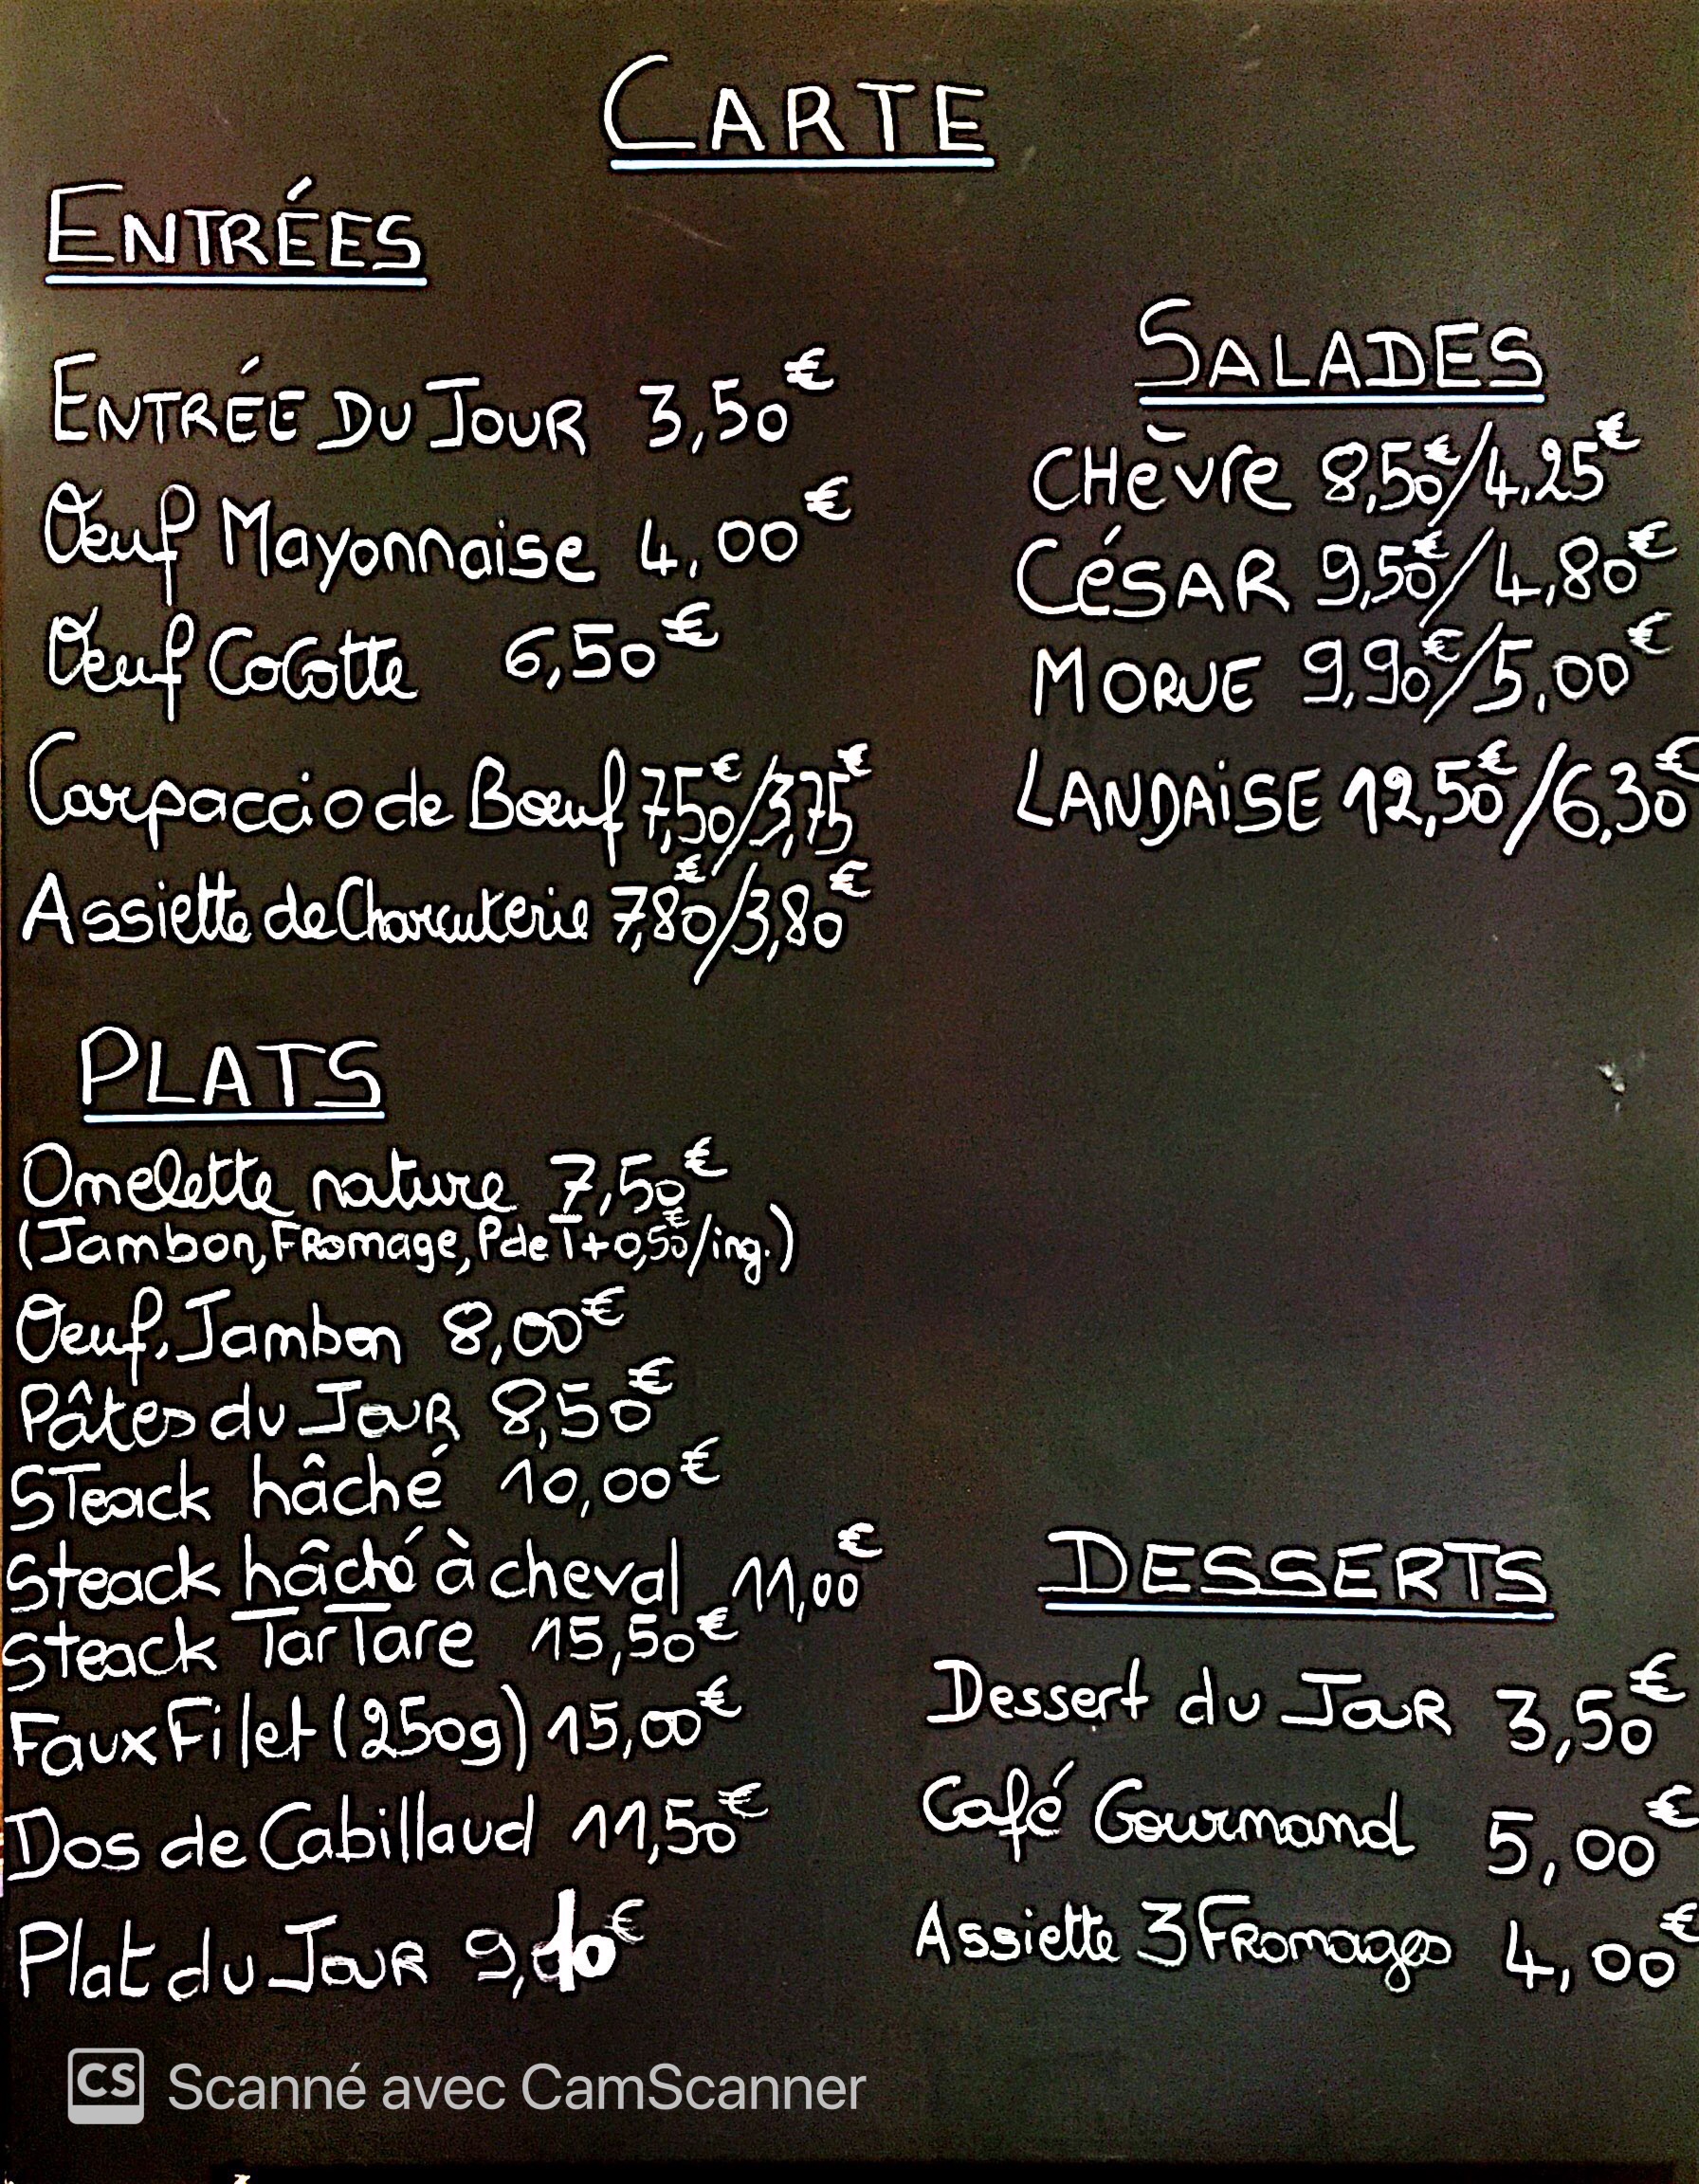 CARTE
ENTRÉES
ENTRÉE DU JOUR 3,50€
Œuf Mayonnaise 4,00€
Œuf Cocotte 6,50€
Carpaccio de Bœuf 7,50€/3,75€
Assiette de Charcuterie 7,80€/3,80€
SALADES
CHèvre 8,50€/4,25€
CéSAR 9,50€/4,80€
MORUE 9,90€/5,00€
LANDAiSE 12,50€/6,30€
PLATS
Omelette nature 7,50€
(Jambon, Fromage, P de T + 0,50€/ing.)
Oeuf, Jambon 8,00€
Pâtes du Jour 8,50€
STeack hâché 10,00€
Steack hâché à cheval 11,00€
Steack TarTare 15,50€
Faux Filet (250g) 15,00€
Dos de Cabillaud 11,50€
Plat du Jour
DESSERTS
Dessert du Jour 3,50€
Café Gourmand 5,00€
Assiette 3 Fromages 4,00€
CS Scanné avec CamScanner